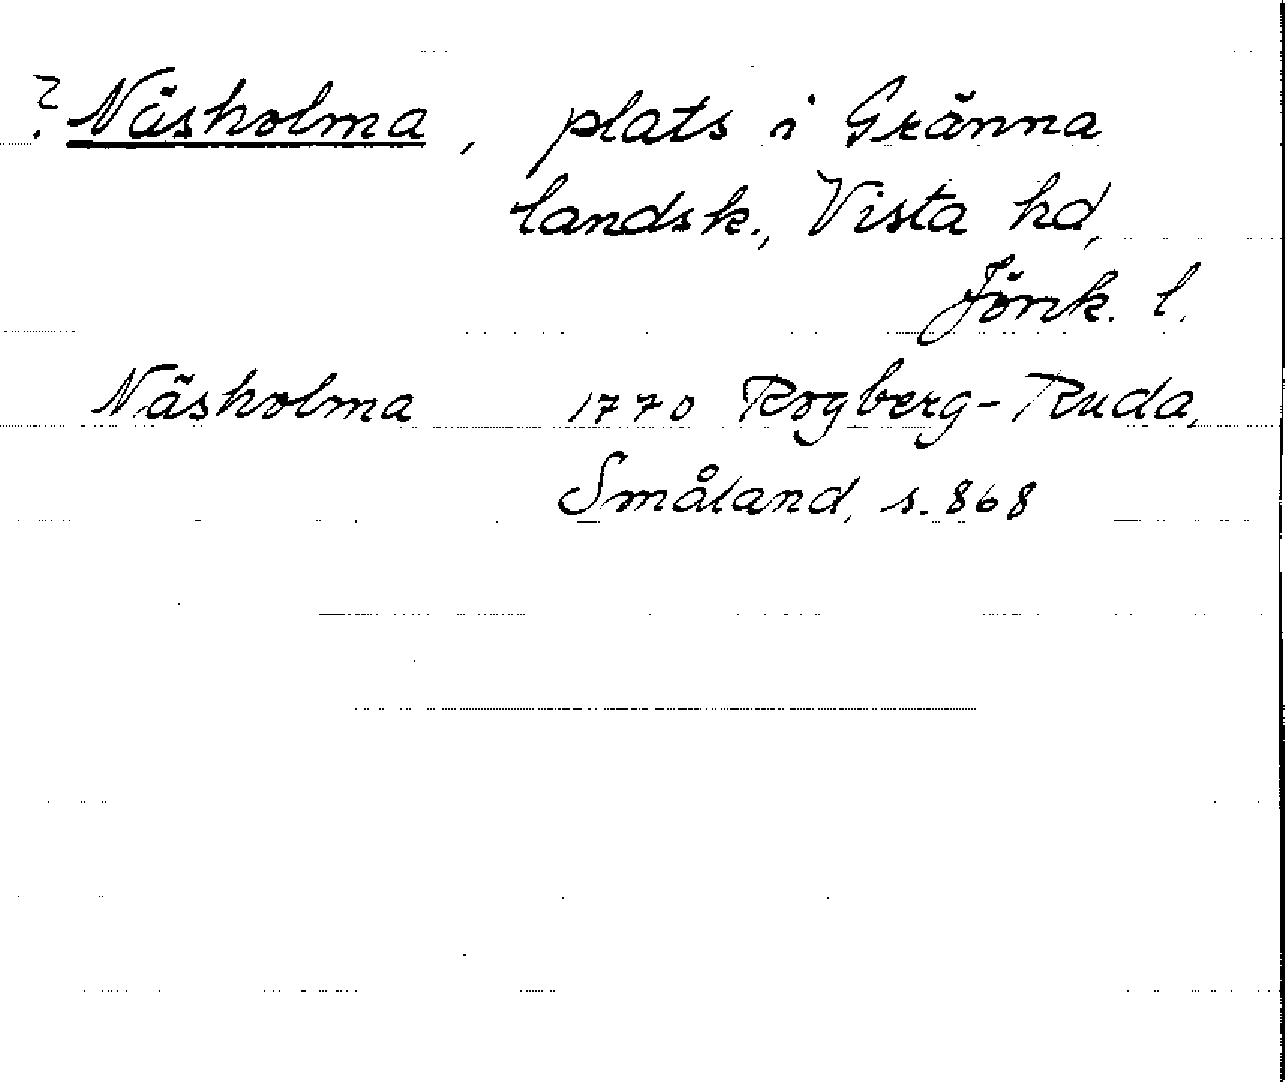 ? Näsholma, plats i Gränna
landsk., Vista hd,
Jönk. l.
Näsholma 1770 Rogberg-Ruda,
Småland, s. 868